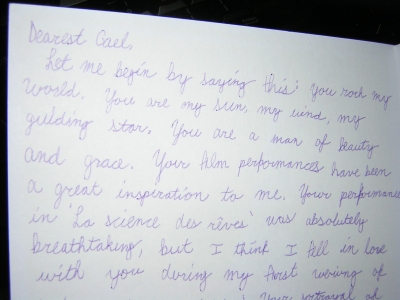 Dearest Gael,
Let me begin by saying this: you rock my
world. You are my sun, my wind, my
guiding star. You are a man of beauty
and grace. Your film performances have been
a great inspiration to me. Your performance
in 'La science des rêves' was absolutely
breathtaking, but I think I fell in love
with you during my first viewing of
Your portrayal of